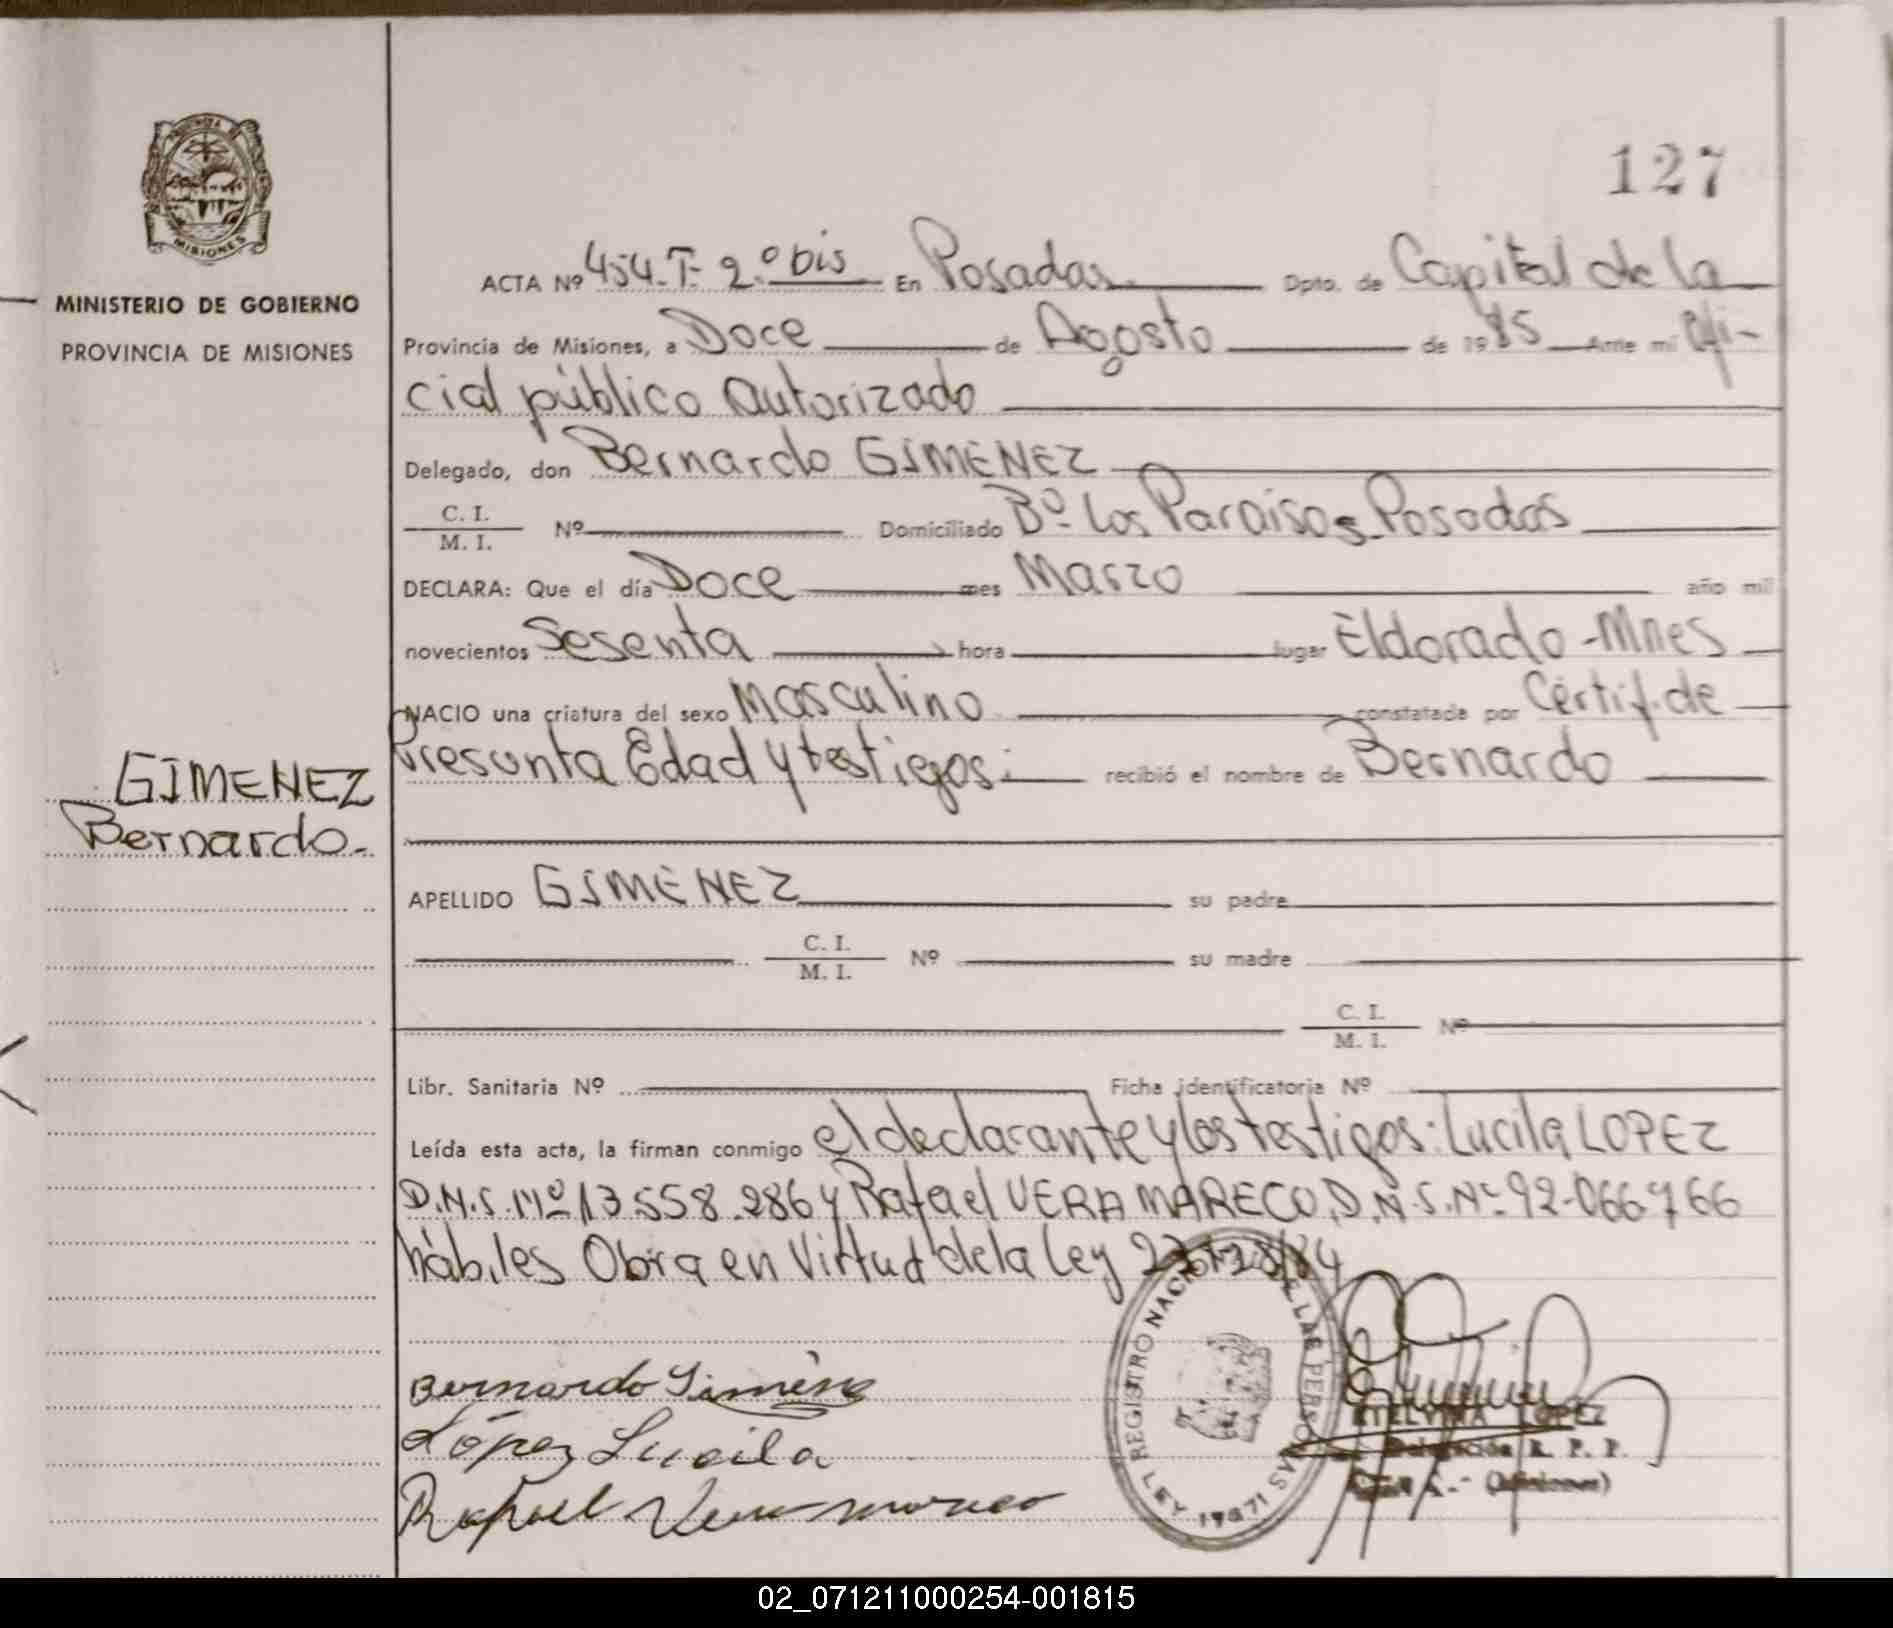 127
PROVINCIA DE
MISIONES
MINISTERIO DE GOBIERNO
PROVINCIA DE MISIONES
GIMENEZ
Bernardo.
ACTA Nº 454. T- 2.º bis En Posadas Dpto. de Capital de la
Provincia de Misiones, a Doce de Agosto de 1985 Ante mi Ofi-
cial público autorizado
Delegado, don Bernardo GIMENEZ
C. I.
M. I. Nº Domiciliado Bº Los Paraisos Posadas
DECLARA: Que el día Doce mes Marzo año mil
novecientos Sesenta hora lugar Eldorado - Mnes
NACIO una criatura del sexo Masculino constatada por Certif. de
Presunta Edad y testigos: recibió el nombre de Bernardo
APELLIDO GIMENEZ su padre
C. I.
M. I. Nº su madre
C. I.
M. I. Nº
Libr. Sanitaria Nº Ficha identificatoria Nº
Leída esta acta, la firman conmigo el declarante y los testigos: Lucila LOPEZ
D.N.I. Nº 13.558.286 y Rafael VERA MARECO, D.N.I. Nº 92-066766
hábiles Obra en Virtud de la Ley
Bernardo Giménez
López Lucila
Rafael Vera Mareco
REGISTRO NACIONAL DE LAS PERSONAS
LEY 17671
ETELVINA LOPEZ
Delegación R. P. P.
(Misiones)
02_071211000254-001815